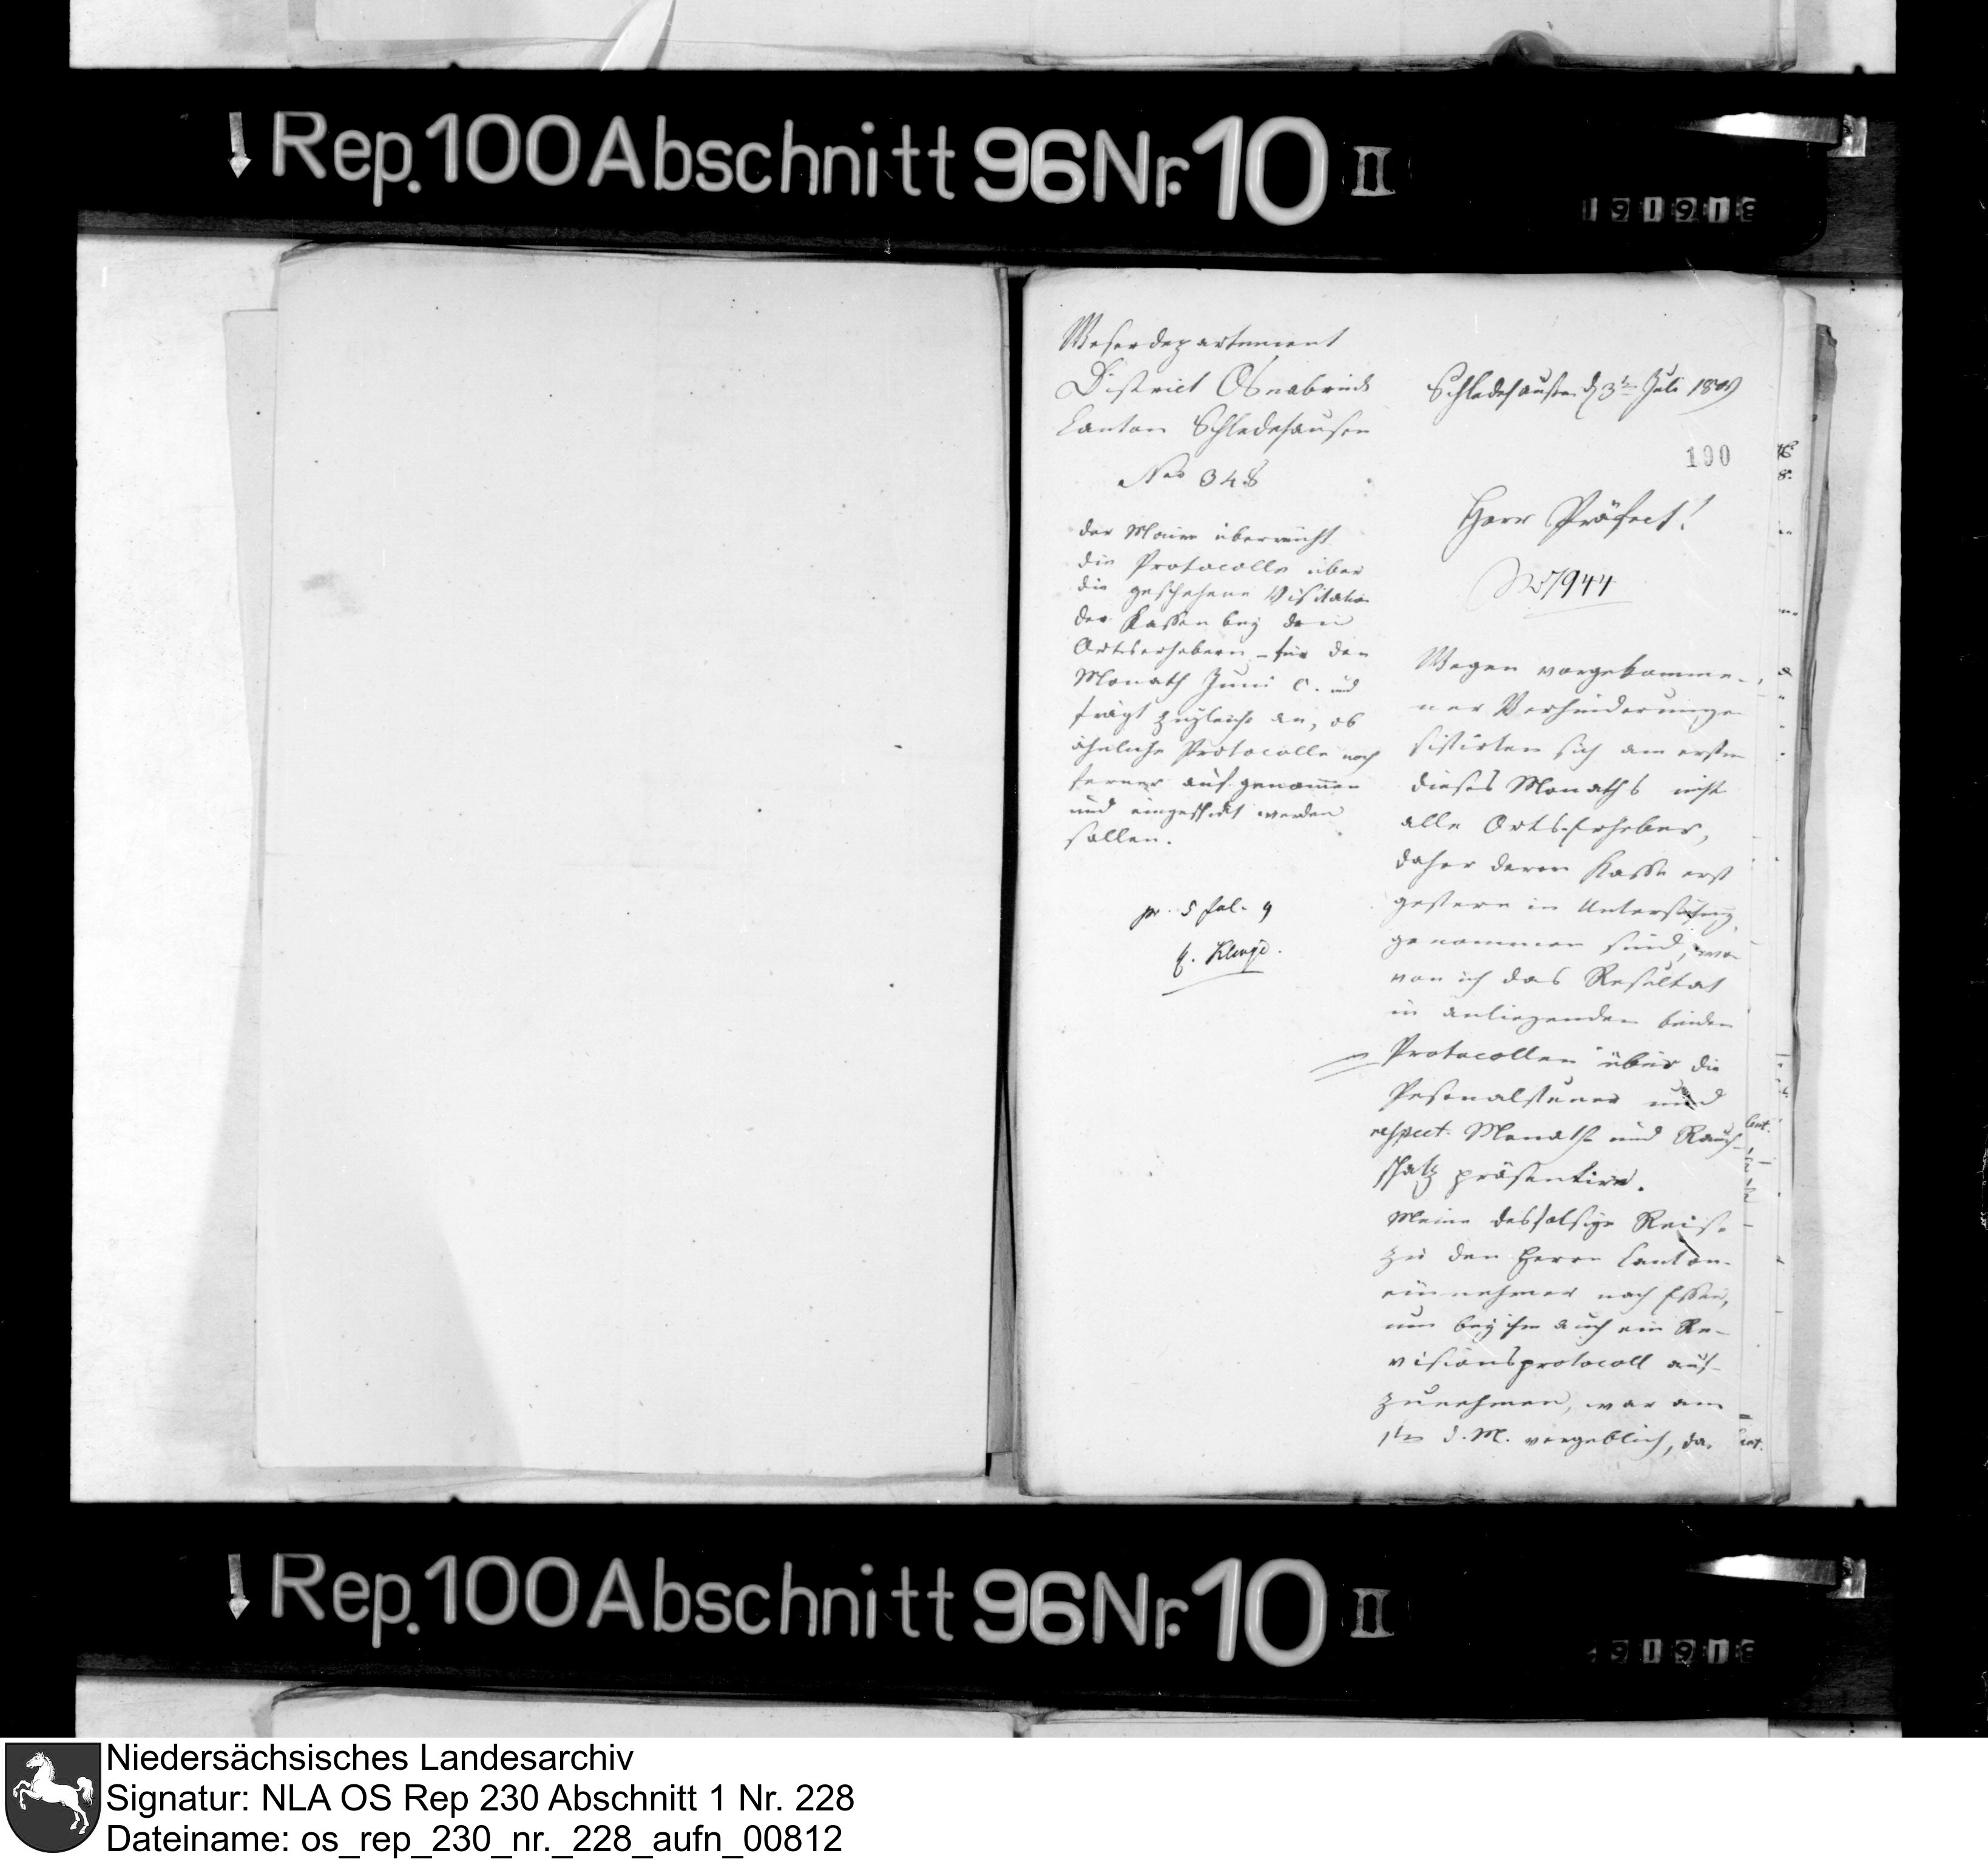 Rep. 100 Abschnitt 96 Nr. 10 II
191918
Weserdepartement
District Osnabrück
Canton Schledehausen
Nro 348
der Maire überreicht
die Protocolle über
die geschehene Visitation
der Kassen bey den
Ortserhebern für den
Monath Juni c. und
frägt zugleich an, ob
ähnliche Protocolle noch
ferner aufgenommen
und eingeschickt werden
sollen.
pr. 5 Jul. 9
Schledehausen d 3t Juli 1809
100
Herr Präfect!
No 7944
Wegen vorgekomme-
ner Verhinderunge
sistirten sich am ersten
dieses Monaths nicht
alle Orts-Erheber,
daher deren Kasse erst
gestern in Untersuchung
genommen sind, wo-
von ich das Resultat
in anliegenden beiden
Protocollen über die
Pesonalsteuer und
respect. Monath und Rauch-
schatz präsentire.
Meine desfalsige Reise
zu den Herrn Canton-
einnehmer nach Essen,
um bey ihm auch ein Re-
visionsprotocoll auf-
zunehmen, war am
1ten d. M. vergeblich, da
Rep. 100 Abschnitt 96 Nr. 10 II
91918
Niedersächsisches Landesarchiv
Signatur: NLA OS Rep 230 Abschnitt 1 Nr. 228
Dateiname: os_rep_230_nr._228_aufn_00812